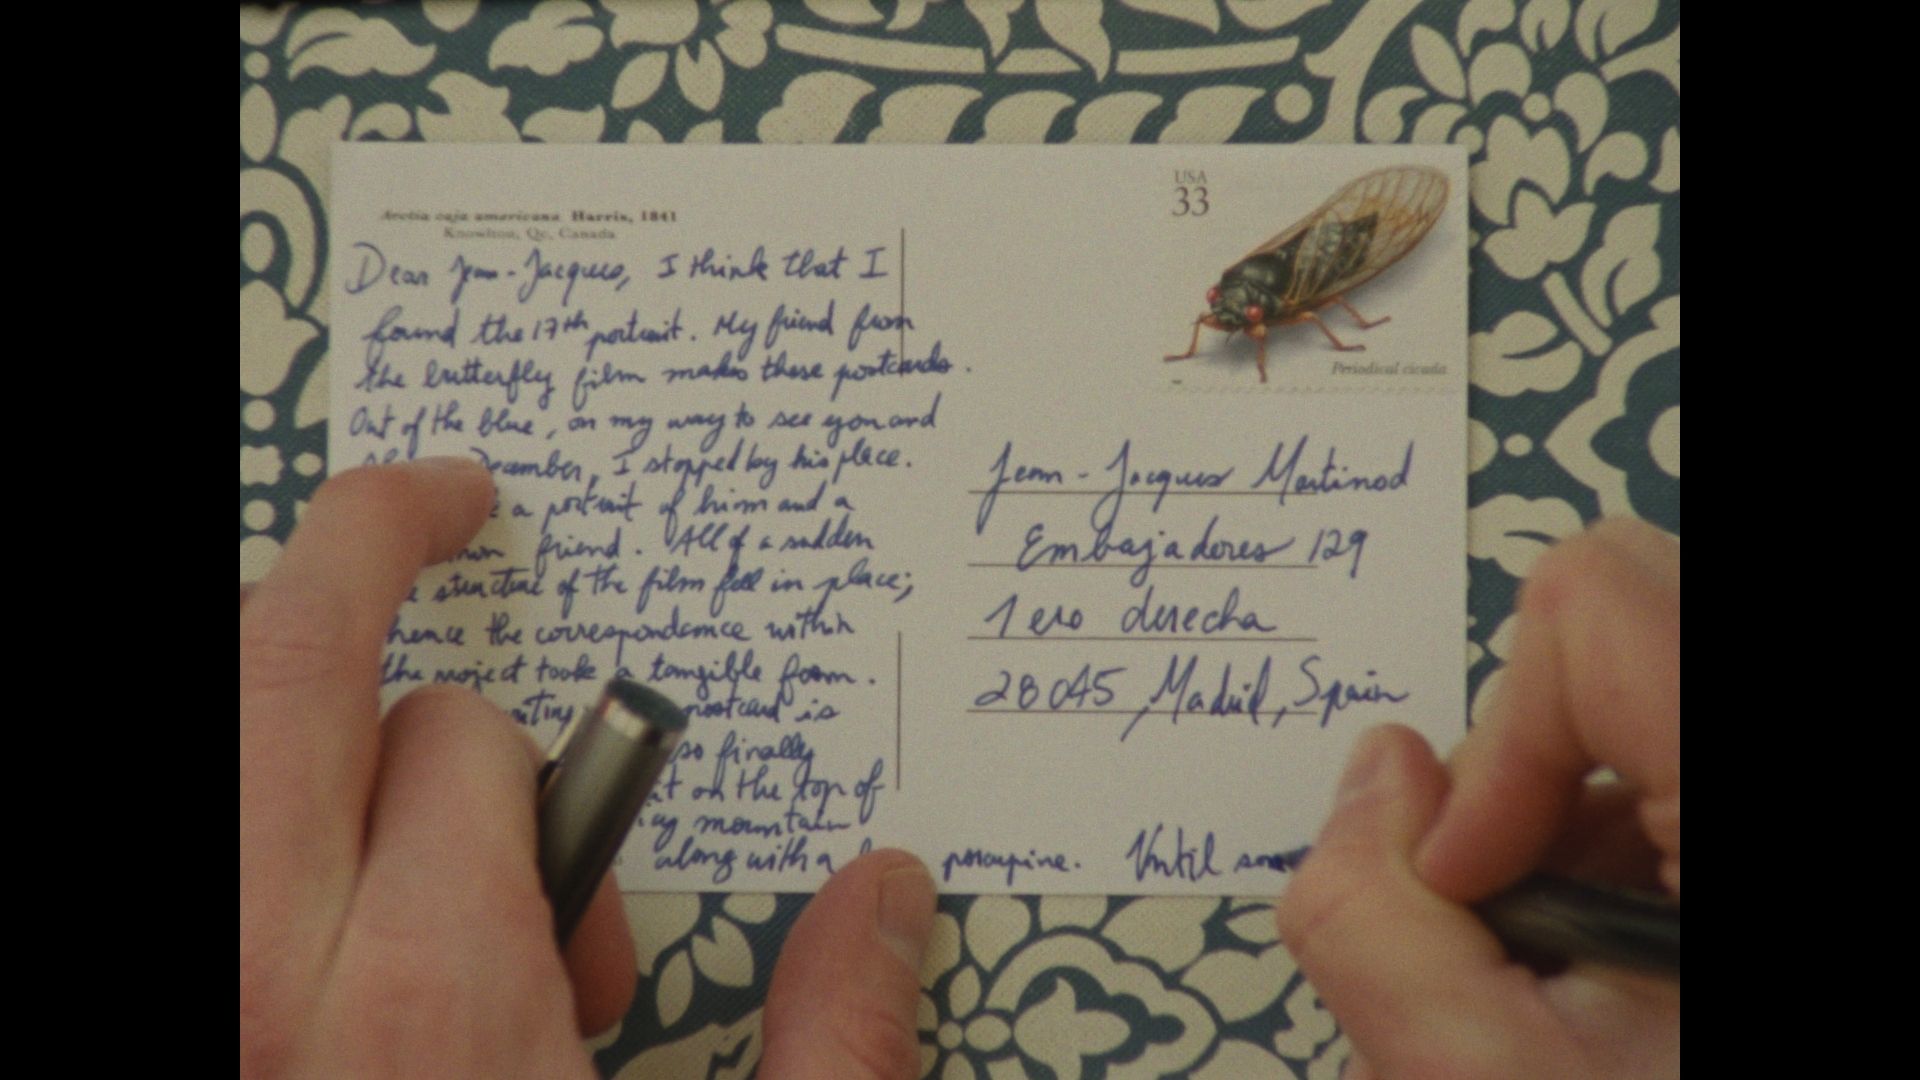 Arctia caja americana Harris, 1841
Knowlton, Qc, Canada
Dear Jean-Jacques, I think that I
found the 17th portrait. My friend from
the butterfly film makes these postcards.
Out of the blue, on my way to see you and
December, I stopped by his place.
a portrait of him and a
friend. All of a sudden
structure of the film fell in place;
hence the correspondence within
the project took a tangible form.
postcard is
so finally
it on the top of
mountain
along with a porcupine. Until
USA
33
Periodical cicada
Jean-Jacques Martinod
Embajadores 129
1ero derecha
28045, Madrid, Spain